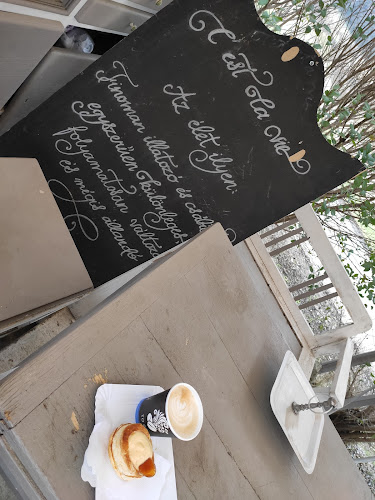 C'est la vie!
Az élet ilyen.
Finoman illatozó és
egyszerűen különleges,
folyamatosan változó
és mégis állandó